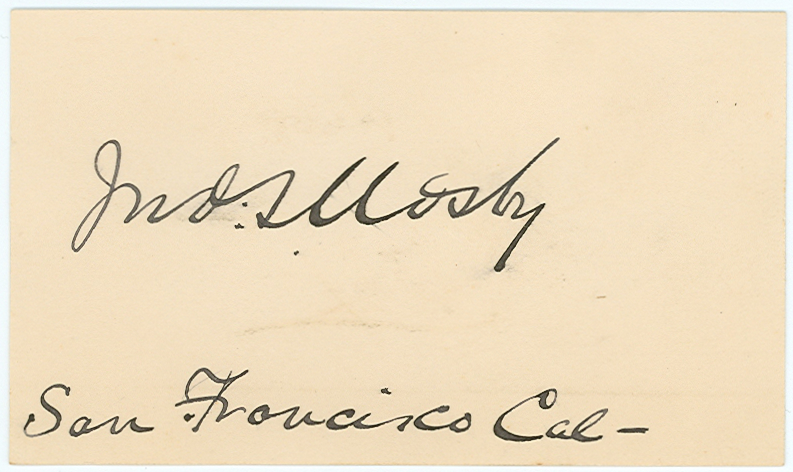 Jno: S. Mosby
San Francisco Cal-